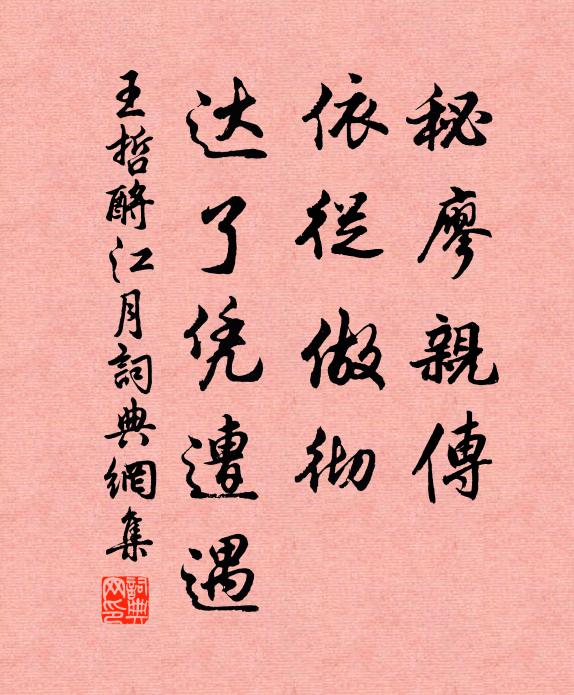 秘廖親傳
依從做彻
达了凭遭遇
王哲酹江月詞典網集
詞典网印